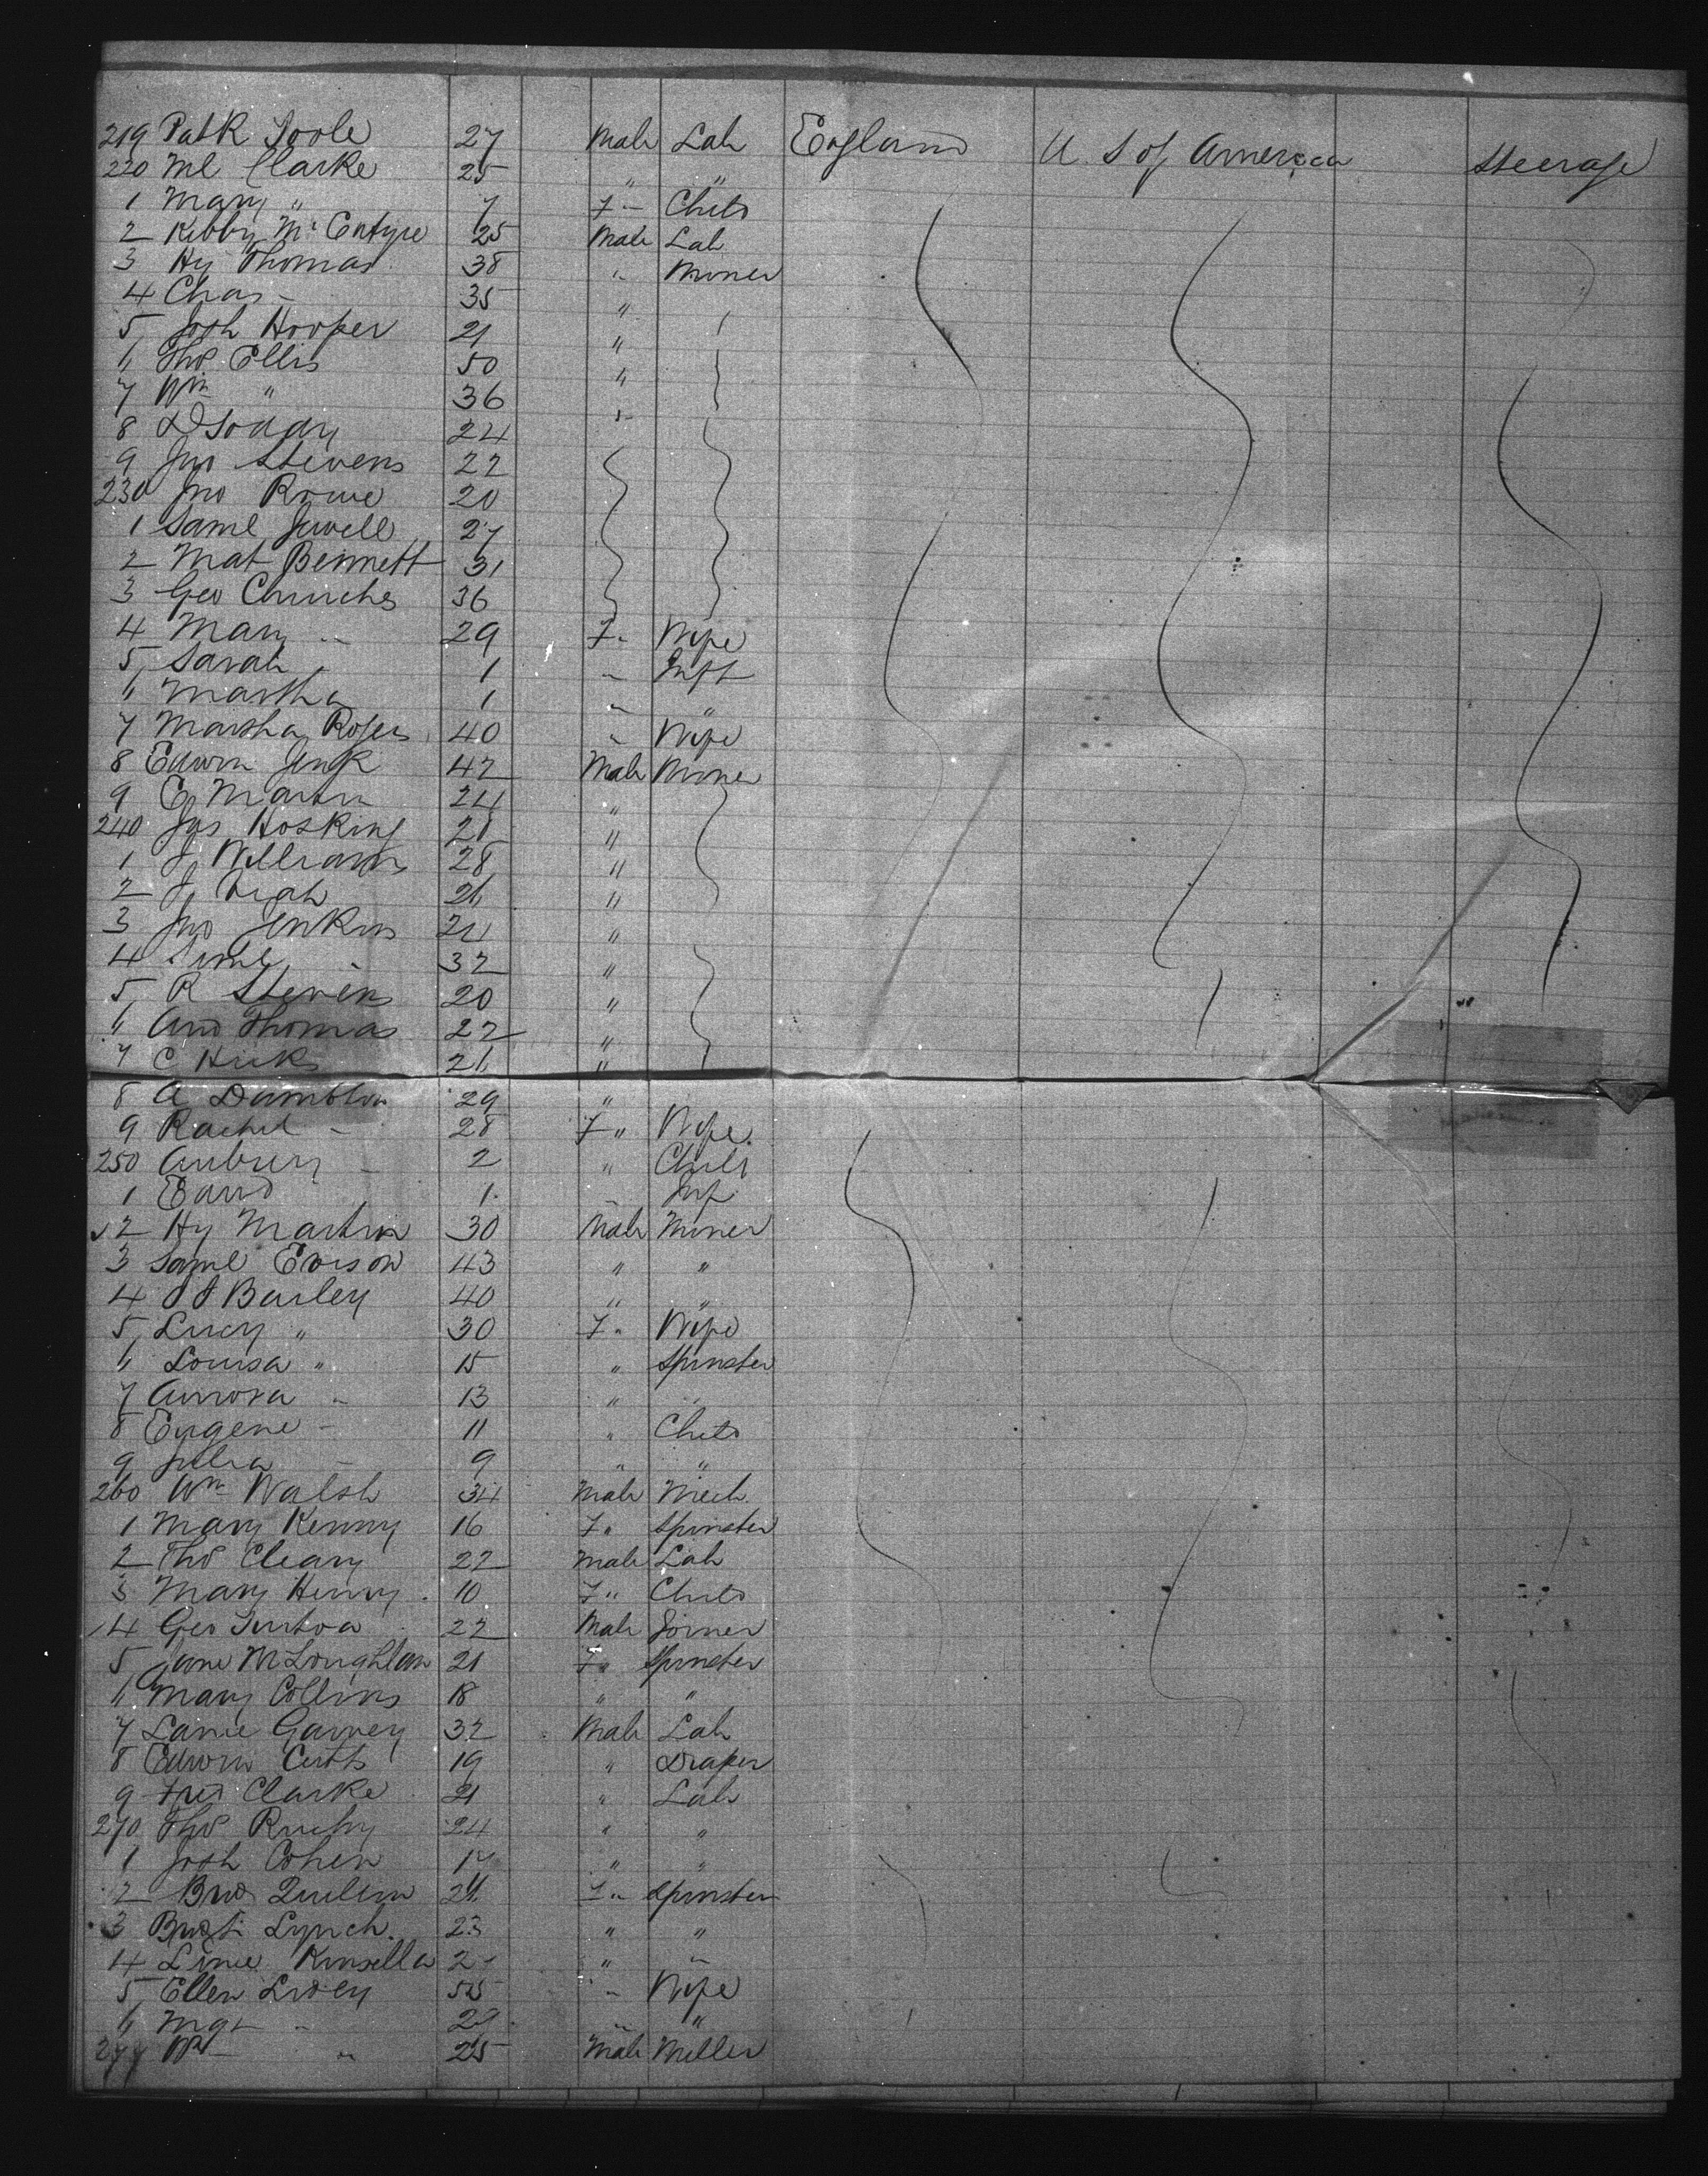 219 Patk Toole 27 Male Lab England U S of America Steerage
220 Ml Clarke 25 " "
1 Mary " 7 F " Child
2 Kibby McEntyre 25 Male Lab
3 Hy Thomas 38 " Miner
4 Chas " 35 "
5 Josh Hooper 21 "
6 Thos Ellis 50 "
7 Wm " 36 "
8 24
9 Jno Stevens 22
230 Jno Rowe 20
1 Saml Jewell 27
2 Mat Bennett 31
3 Geo Churches 36
4 Mary " 29 F " Wife
5 Sarah " 1 " Inft
6 Martha 1 " "
7 Martha Rogers 40 " Wife
8 Edwin Jenk 42 Male Miner
9 E Martin 24 "
240 Jas Hosking 21 "
1 J Williams 28 "
2 J 26 "
3 Jno Jenkins 24 "
4 " 32 "
5 R Stevens 20 "
6 And Thomas 22 "
7 C Hicks 26 "
8 A 29 "
9 Rachel " 28 F " Wife
250 Aubrey " 2 " Child
1 1 Inf
2 Hy Martin 30 Male Miner
3 Saml Evison 43 " "
4 J J Barley 40 " "
5 Lucy " 30 F " Wife
6 Louisa " 15 " Spinster
7 Aurora " 13 " "
8 Eugene " 11 " Child
9 Julia " 9 " "
260 Wm Walsh 34 Male Mech
1 Mary Kenny 16 F " Spinster
2 Thos Cleary 22 Male Lab
3 Mary Henry 10 F " Child
4 Geo 22 Male Joiner
5 Jane McLoughlan 21 F " Spinster
6 Mary Collins 18 " "
7 Garvey 32 Male Lab
8 Edwin 19 " Draper
9 Fred Clarke 21 " Lab
270 Thos 24 " "
1 Josh Cohen " "
2 F " Spinster
3 Lynch 23 " "
4 Kinsella " "
5 Ellen 55 " Wife
6 Mgt " " "
277 Wm " 25 Male Miller